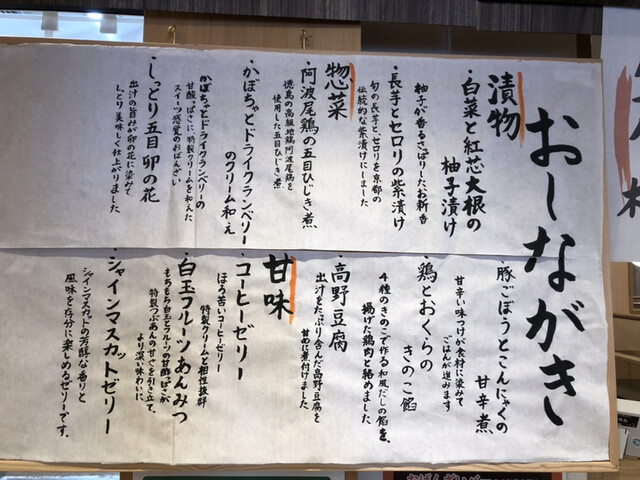 おしながき
漬物
・白菜と紅芯大根の
柚子漬け
柚子が香るさっぱりしたお新香
・長芋とセロリの柴漬け
旬の長芋と、セロリを京都の
伝統的な柴漬けにしました
惣菜
・阿波尾鶏の五目ひじき煮
徳島の高級地鶏阿波尾鶏を
使用した五目ひじき煮
・かぼちゃとドライクランベリー
のクリーム和え
かぼちゃとドライクランベリーの
甘酸っぱさに、特製クリームを和えた
スイーツ感覚のおばんざい
・しっとり五目卯の花
出汁の旨みが卯の花に染みて
しっとり美味しく仕上がりました
・豚ごぼうとこんにゃくの
甘辛煮
甘辛い味つけが食材に染みて
ごはんが進みます
・鶏とおくらの
きのこ餡
4種のきのこで作る和風だしの餡を、
揚げた鶏肉と絡めました
・高野豆腐
出汁をたっぷり含んだ高野豆腐を
甘めに煮付けました
甘味
・コーヒーゼリー
ほろ苦いコーヒーゼリー
特製クリームと相性抜群
・白玉フルーツあんみつ
もちもち白玉とフルーツの甘酸っぱさが
特製つぶあんの甘さを引き立て、
より深い味わいに
・シャインマスカットゼリー
シャインマスカットの芳醇な香りと
風味を存分に楽しめるゼリーです。